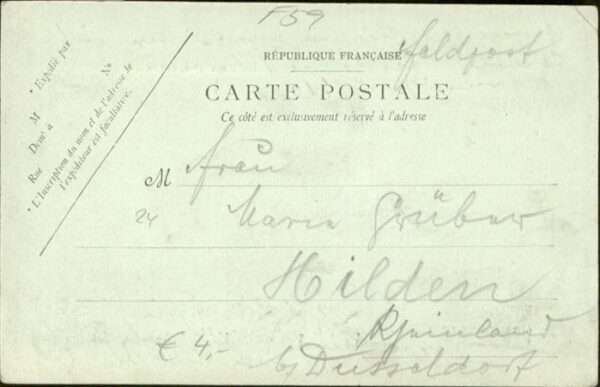 F59
RÉPUBLIQUE FRANÇAISE Feldpost
CARTE POSTALE
Ce côté est exclusivement réservé à l'adresse
* Expédié par
M No
Demt à
Rue
* L'Inscription du nom et de l'adresse de
l'expéditeur est facultative.
M Frau
24 Marie Grüber
Hilden
Rheinland
€ 4,- b/ Düsseldorf